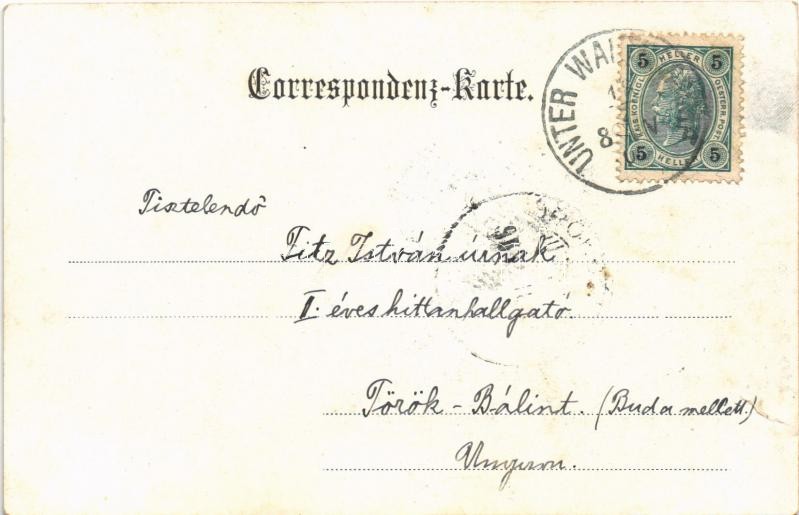 Correspondenz-Karte.
UNTER WAL
5 HELLER 5
KAIS. KOENIGL. OESTERR. POST.
5 HELLER 5
Tisztelendő
Fitz István úrnak
I. éves hittanhallgató.
Török-Bálint. (Buda mellett.)
Ungarn.